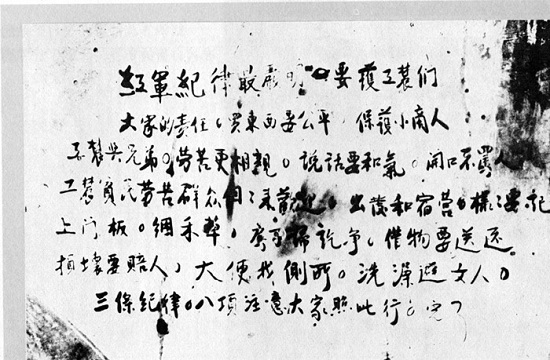 红軍紀律最嚴明。要護工農们
大家的責任。買東西要公平。保護小商人
工農與兄弟。勞苦更相親。說話要和氣。開口不罵人
工農貧民勞苦群众 出發和宿营。樣々要記
上门板。綑禾草。房子掃乾净。借物要送还
損壞要賠人。大便找側所。洗澡避女人。
三條紀律。八項注意大家照此行